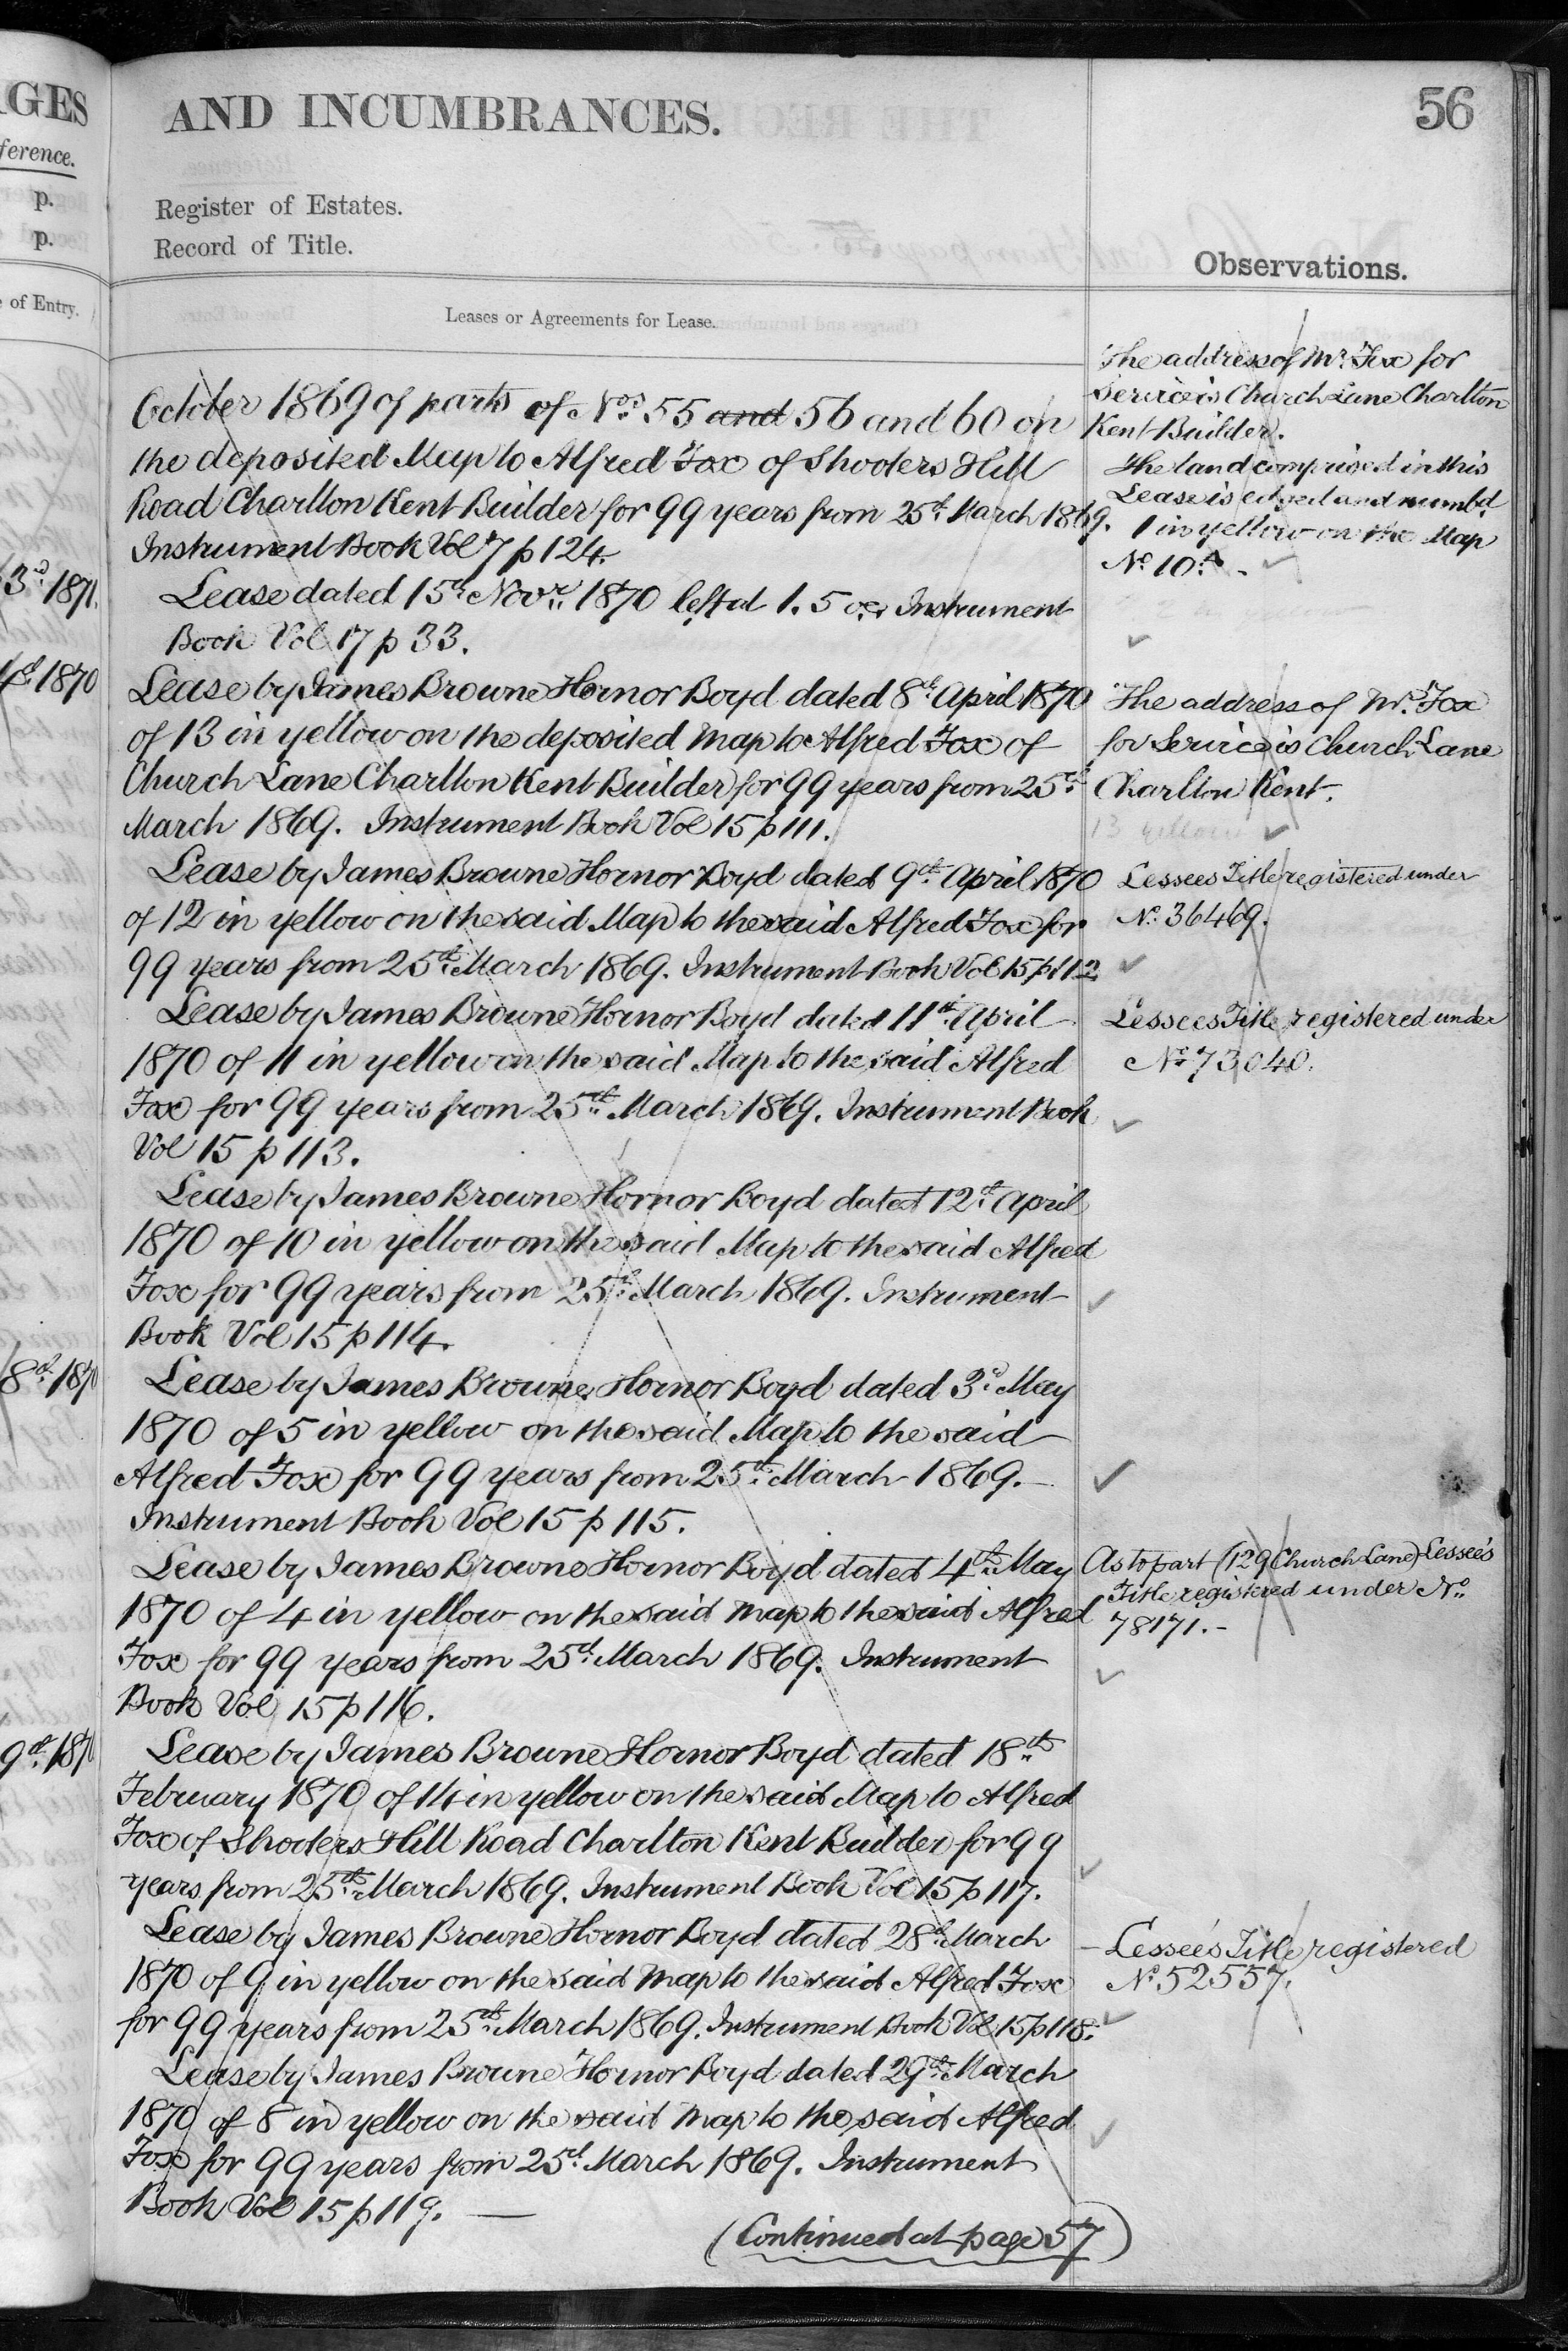 AGES
ference.
p.
p.
e of Entry.
3d. 1871.
1870
8th. 1870
9th. 1870
AND INCUMBRANCES.
56
Register of Estates.
Record of Title.
Observations.
Leases or Agreements for Lease.
October 1869 of parts of Nos. 55 and 56 and 60 on
the deposited Map to Alfred Fox of Shooters Hill
Road Charlton Kent Builder for 99 years from 25th. March 1869.
Instrument Book Vol 7 p 124.
Lease dated 15th Novr. 1870 left at 1.5 Instrument
Book Vol 17 p 33.
Lease by James Browne Hornor Boyd dated 8th. April 1870
of 13 in yellow on the deposited Map to Alfred Fox of
Church Lane Charlton Kent Builder for 99 years from 25th.
March 1869. Instrument Book Vol 15 p 111.
Lease by James Browne Hornor Boyd dated 9th. April 1870
of 12 in yellow on the said Map to the said Alfred Fox for
99 years from 25th. March 1869. Instrument Book Vol 15 p 112
Lease by James Browne Hornor Boyd dated 11th. April
1870 of 11 in yellow on the said Map to the said Alfred
Fox for 99 years from 25th. March 1869. Instrument Book
Vol 15 p 113.
Lease by James Browne Hornor Boyd dated 12th. April
1870 of 10 in yellow on the said Map to the said Alfred
Fox for 99 years from 25th. March 1869. Instrument
Book Vol 15 p 114.
Lease by James Browne Hornor Boyd dated 3d. May
1870 of 5 in yellow on the said Map to the said
Alfred Fox for 99 years from 25th. March 1869.
Instrument Book Vol 15 p 115.
Lease by James Browne Hornor Boyd dated 4th. May
1870 of 4 in yellow on the said Map to the said Alfred
Fox for 99 years from 25th. March 1869. Instrument
Book Vol 15 p 116.
Lease by James Browne Hornor Boyd dated 18th.
February 1870 of 14 in yellow on the said Map to Alfred
Fox of Shooters Hill Road Charlton Kent Builder for 99
years from 25th. March 1869. Instrument Book Vol 15 p 117.
Lease by James Browne Hornor Boyd dated 28th. March
1870 of 9 in yellow on the said Map to the said Alfred Fox
for 99 years from 25th. March 1869. Instrument Book Vol 15 p 118.
Lease by James Browne Hornor Boyd dated 29th. March
1870 of 8 in yellow on the said Map to the said Alfred
Fox for 99 years from 25th. March 1869. Instrument
Book Vol 15 p 119.
(Continued at page 57)
The address of Mr. Fox for
Service is Church Lane Charlton
Kent Builder.
The land comprised in this
Lease is edged and numbd.
1 in yellow on the Map
No. 10A.
The address of Mr. Fox
for Service is Church Lane
Charlton Kent.
13 yellow
Lessees Title registered under
No. 36469.
Lessees Title registered under
No. 73040.
As to part (129 Church Lane) Lessee's
Title registered under No.
78171.-
- Lessee's Title registered
No. 52557.